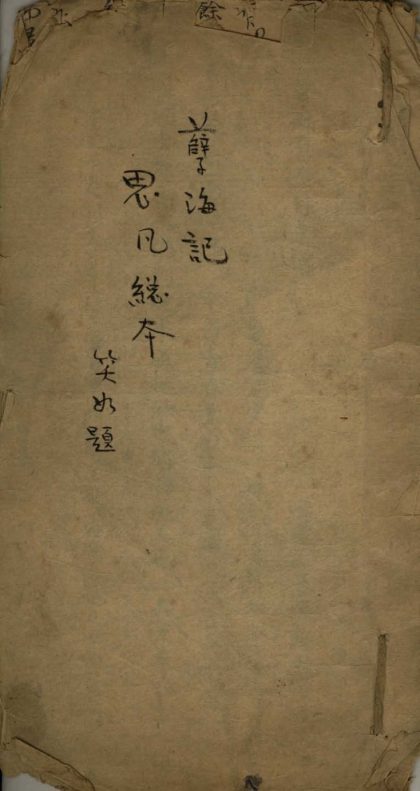 孽海記
思凡總本
笑如題
餘